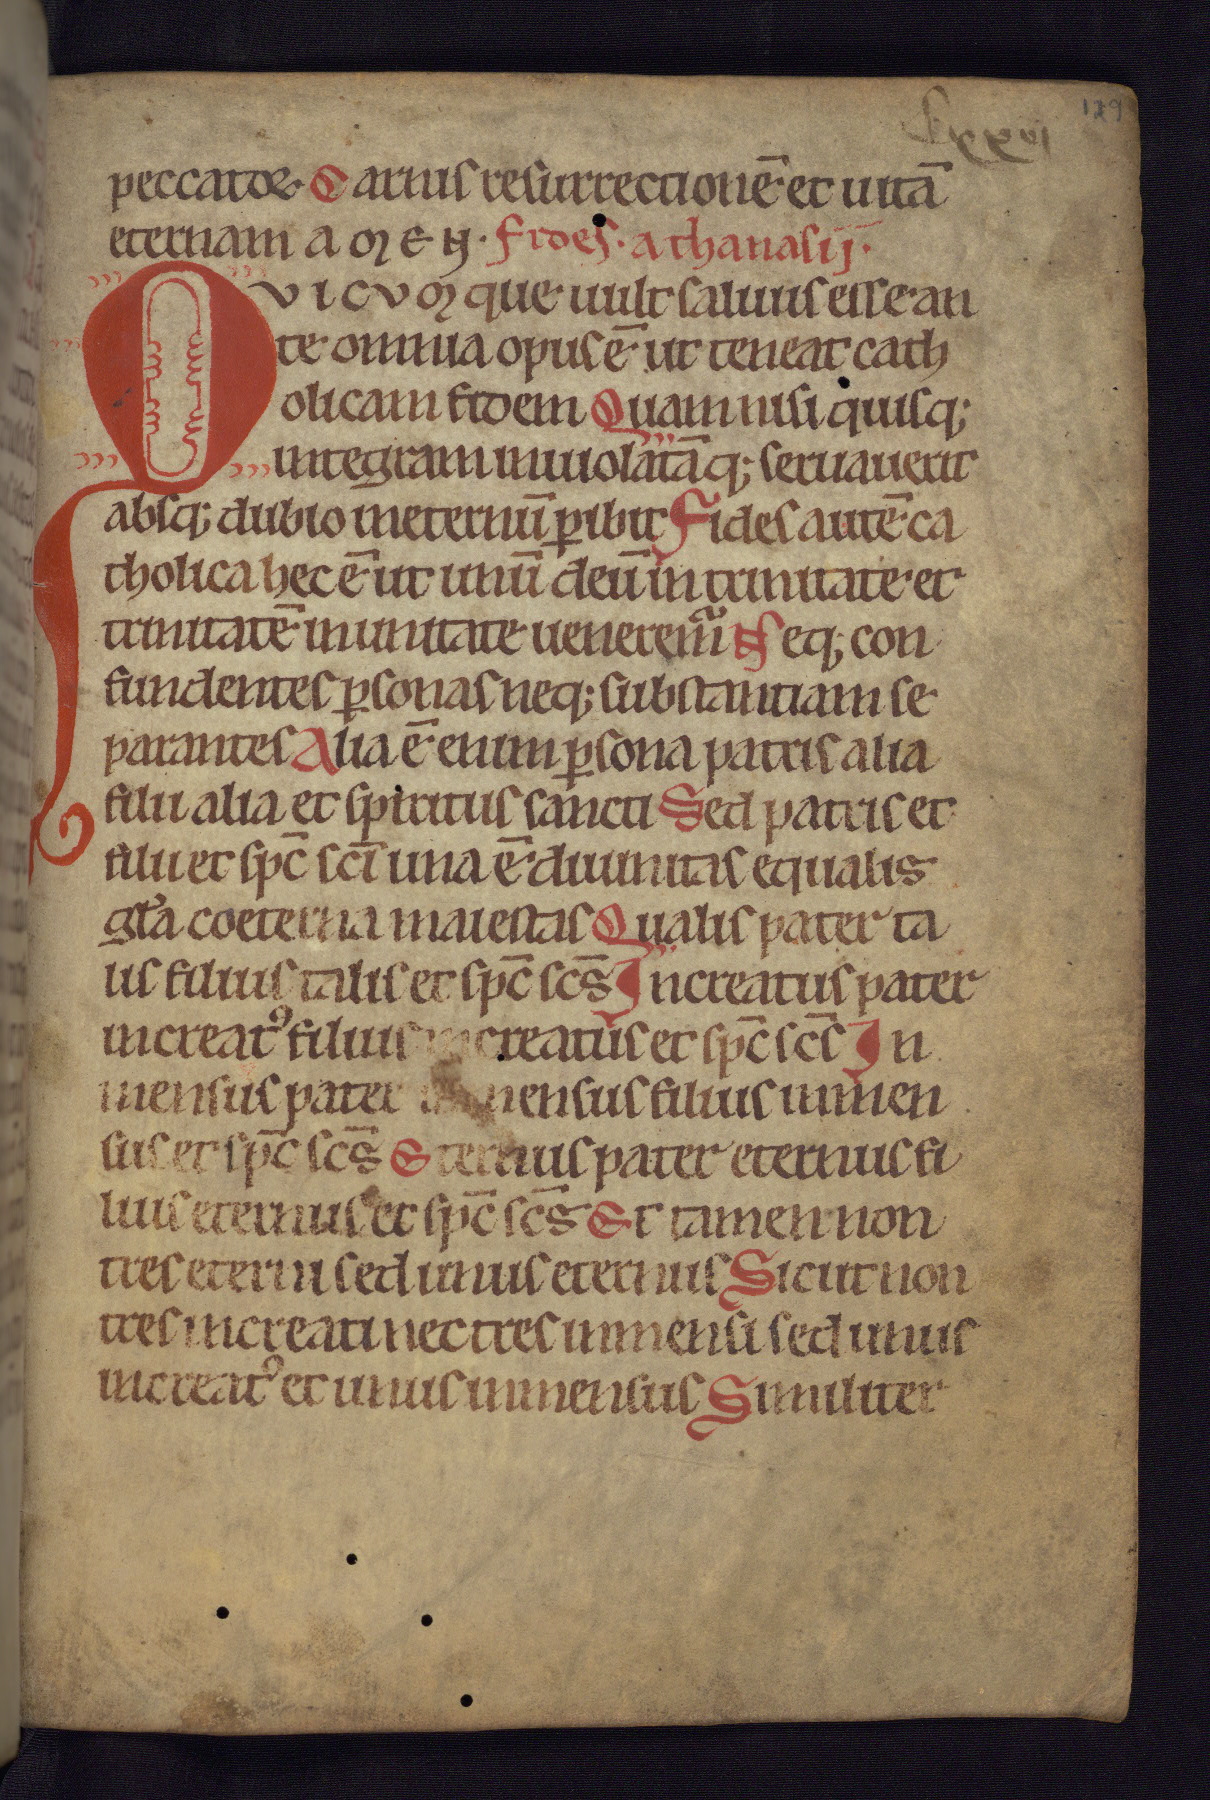 129
lxxxvi
peccatoꝝ Carnis resurrectionē et uitā
eternam AMEN. Fides. athanasij.
QVICVMque uult saluus esse an
te omnia opus ē ut teneat cath
olicam fidem Quam nisi quisq;
integram inuiolatāq; seruauerit
absq; dubio ineternū ꝑibit Fides autē ca
tholica hec ē ut unū deū in trinitate et
trinitatē in unitate uenerem᷑ Neq; con
fundentes ꝑsonas neq; substantiam se
parantes Alia ē enim ꝑsona patris alia
filii alia et spiritus sancti Sed patris et
filii et spc̄ scī una ē diuinitas equalis
gl̄a coeterna maiestas Qualis pater ta
lis filius talis et spc̄ scs̄ Increatus pater
increatꝰ filius increatus et spc̄ scs̄ In
mensus pater inmensus filius inmen
sus et spc̄ scs̄ Eternus pater eternus fi
lius eternus et spc̄ scs̄ Et tamen non
tres eterni sed unus eternus Sicut non
tres increati nec tres inmensi sed unus
increatꝰ et unus inmensus Similiter